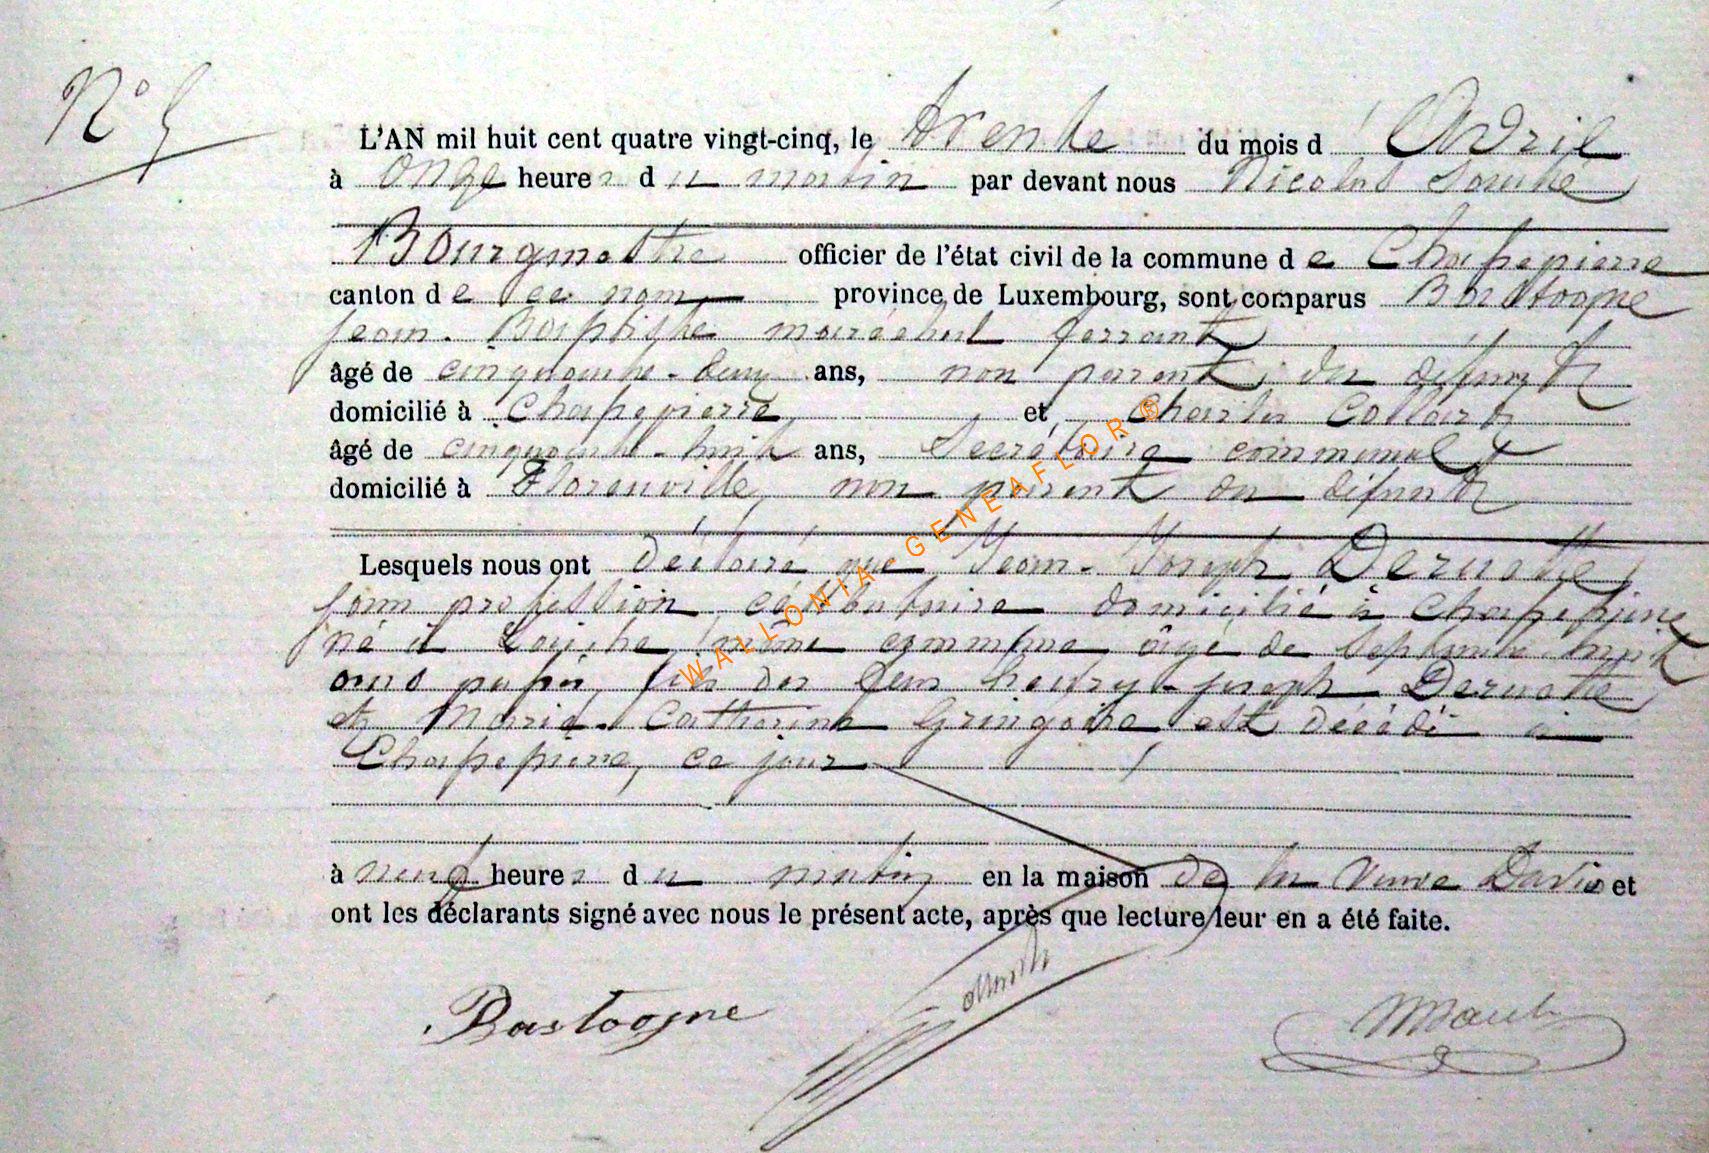 N° 5
L'AN mil huit cent quatre vingt-cinq, le trente du mois d'Avril
à onze heures du matin par devant nous Nicolas
Bourgmestre officier de l'état civil de la commune de Chassepierre
canton de ce nom, province de Luxembourg, sont comparus Bastogne
Jean-Baptiste maréchal ferrant
âgé de cinquante-deux ans, non parent du défunt
domicilié à Chassepierre et, Charles Collard
âgé de cinquante-huit ans, Secrétaire communal
domicilié à Florenville, non parent du défunt
Lesquels nous ont déclaré que Jean-Joseph Deruette
sans profession célibataire domicilié à Chassepierre
né à Laiche même commune, âgé de septante huit
ans passés, fils des feus henry-joseph Deruette
et Marie-Catherine Gringoire est décédé à
Chassepierre, ce jour
à neuf heures du matin en la maison de la veuve David et
ont les déclarants signé avec nous le présent acte, après que lecture leur en a été faite.
WALLONIA GENEAFLOR®
Bastogne